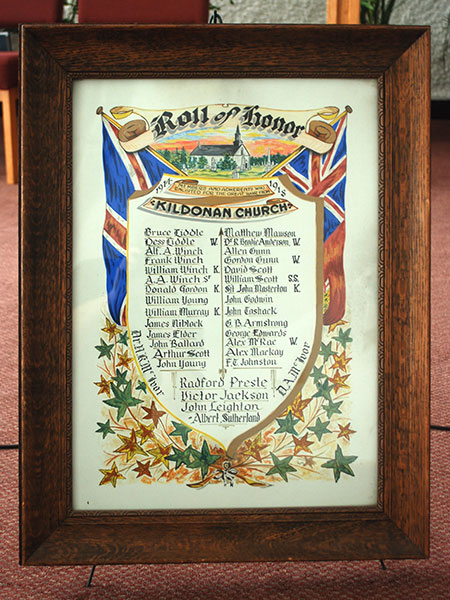 Roll of Honor
1914 1918
MEMBERS AND ADHERENTS WHO
ENLISTED FOR THE GREAT WAR FROM
KILDONAN CHURCH
Bruce Liddle
Dess Liddle W.
Alf. A. Winch
Frank Winch
William Winch K
A.A. Winch Sr
Donald Gordon K
William Young
William Murray K
James Niblock
James Elder
John Ballard
Arthur Scott
John Young
Matthew Mawson
Dr. R. Brodie Anderson. W.
Allen Gunn
Gordon Gunn W.
David Scott
William Scott S.S.
Sgt John Masterton K
John Godwin
John Toshack
G.B. Armstrong
George Edwards
Alex McRae W.
Alex Mackay
F.T. Johnston
Dr. H.K. McIvor
D.A. McIvor
Radford Presle
Victor Jackson
John Leighton
Albert Sutherland